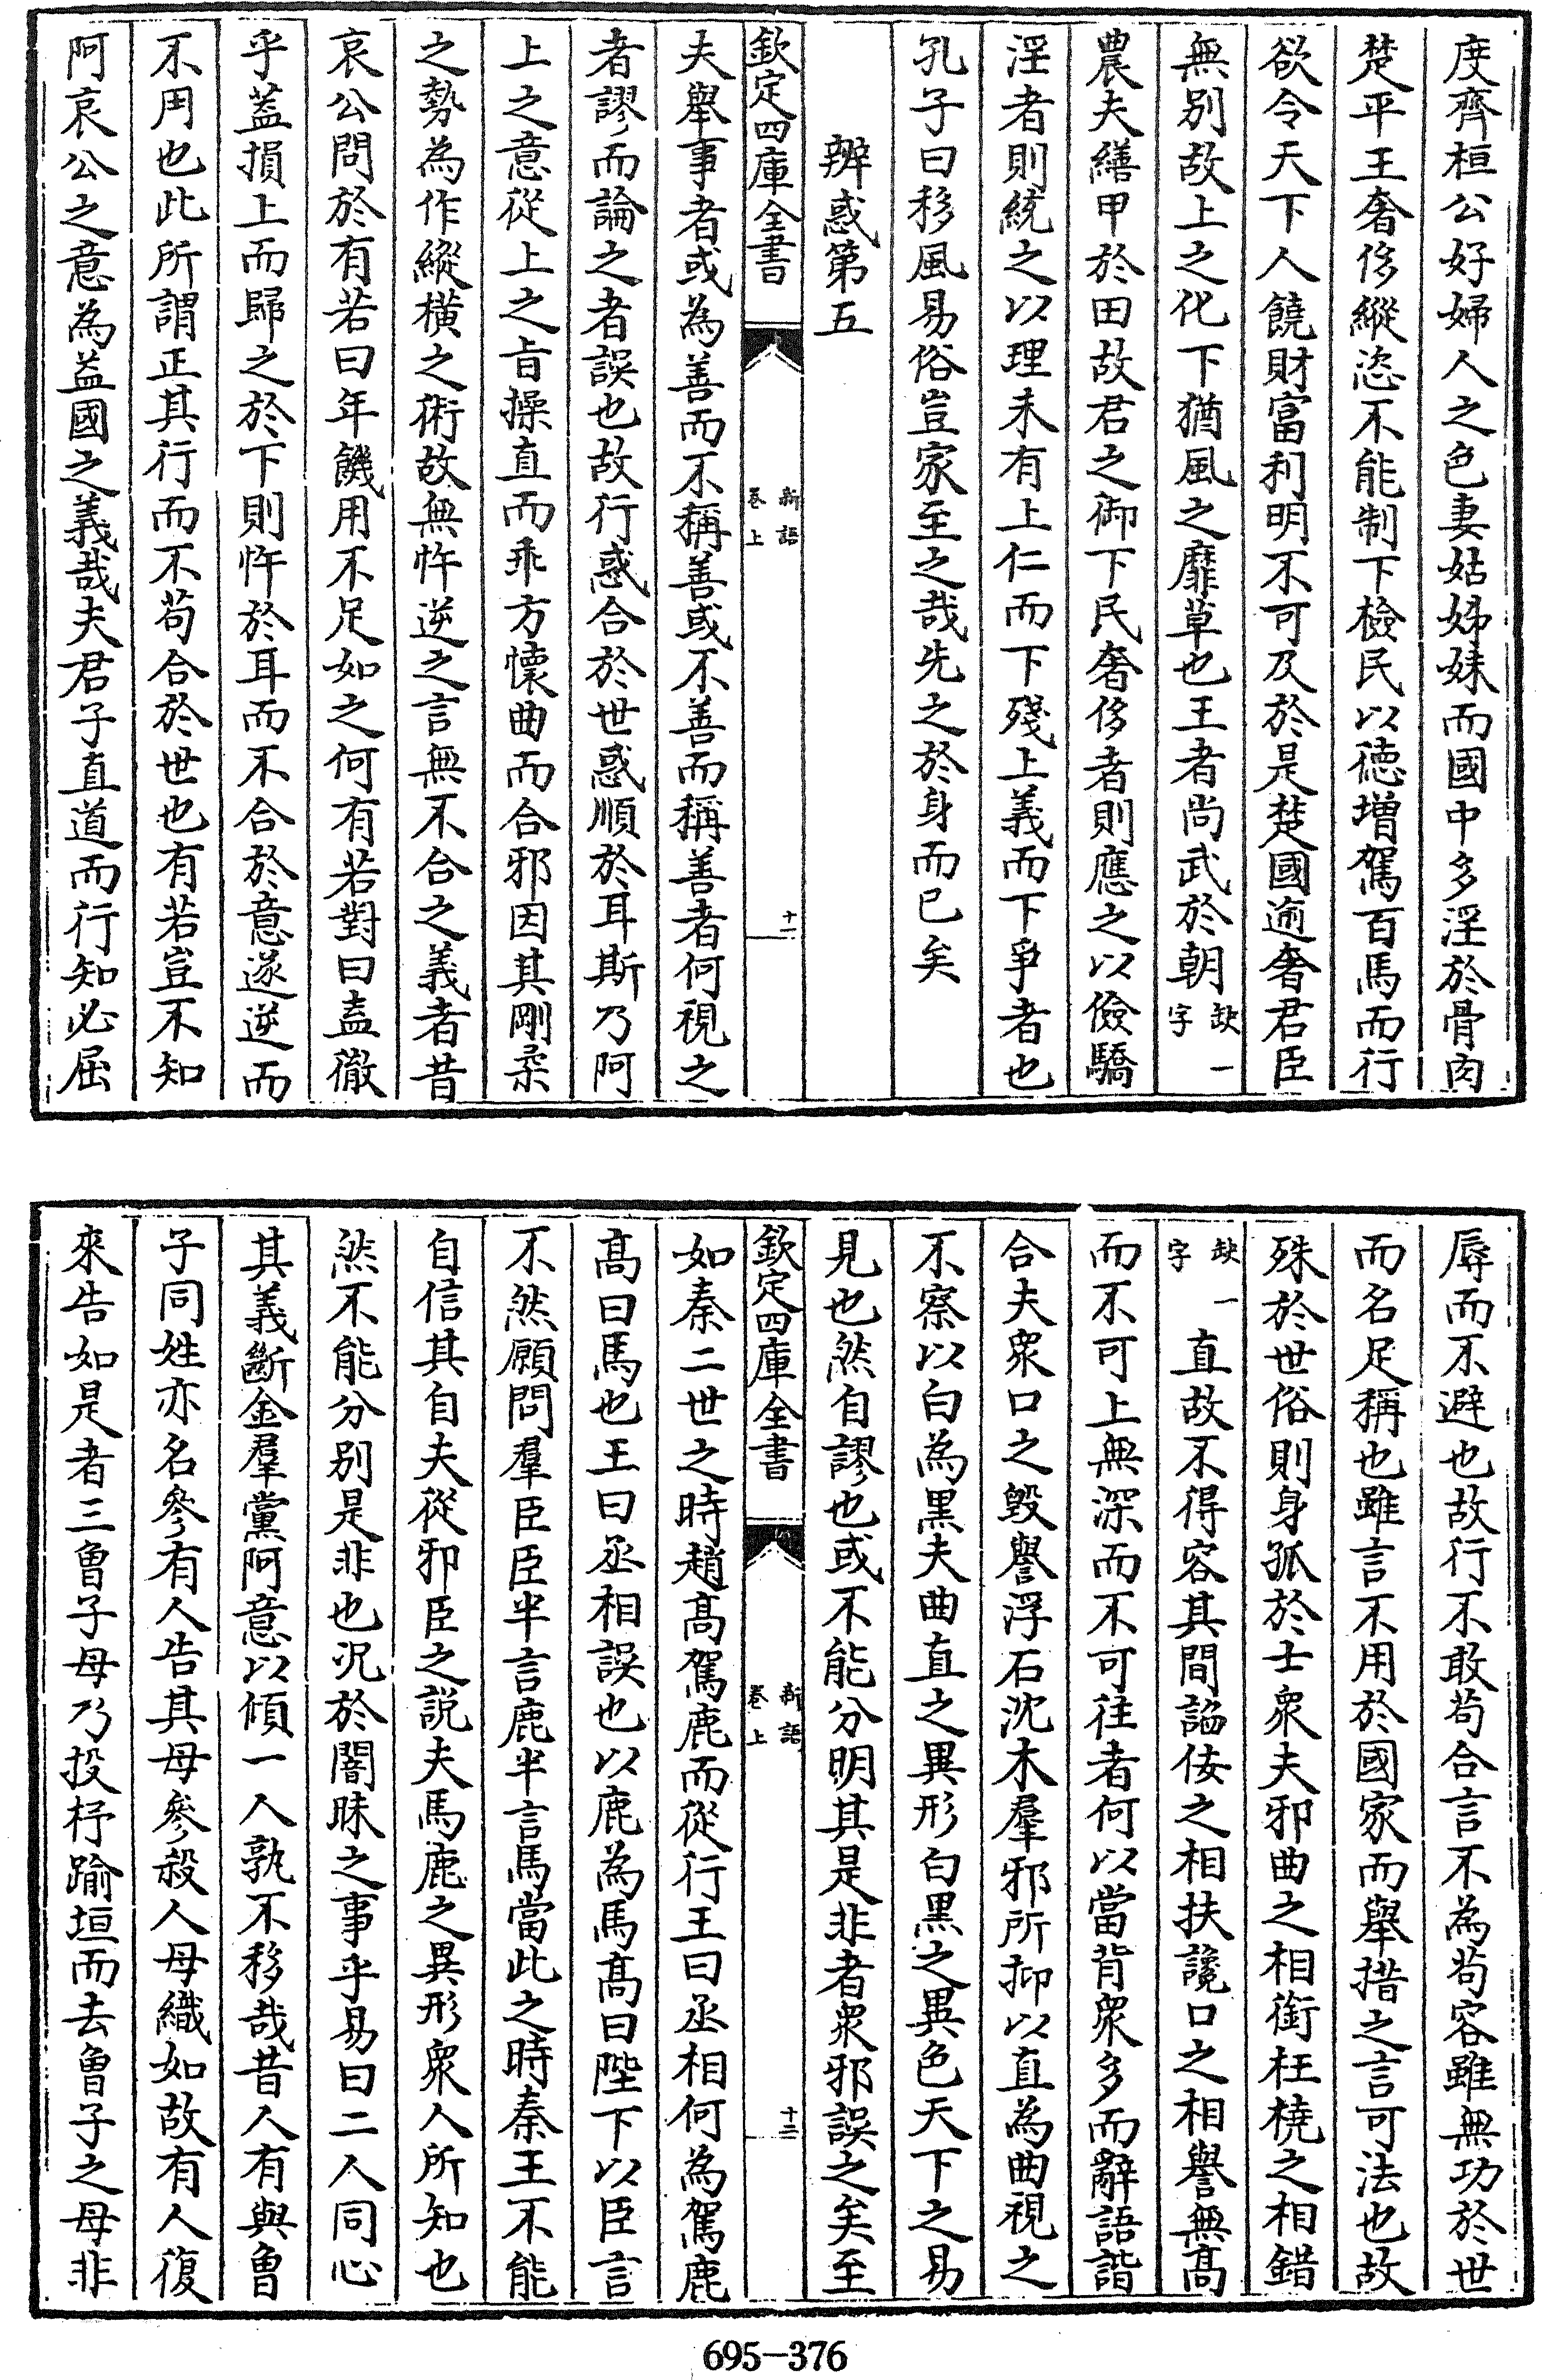 度齊桓公好婦人之色妻姑姊妹而國中多淫於骨肉
楚平王奢侈縱恣不能制下檢民以徳増駕百馬而行
欲令天下人饒財富利明不可及於是楚國逾奢君臣
無别故上之化下猶風之靡草也王者尚武於朝缺一字
農夫繕甲於田故君之御下民奢侈者則應之以儉驕
淫者則統之以理未有上仁而下殘上義而下爭者也
孔子曰移風易俗豈家至之哉先之於身而已矣
辨惑第五
欽定四庫全書
新語
卷上
十二
夫舉事者或為善而不稱善或不善而稱善者何視之
者謬而論之者誤也故行惑合於世惑順於耳斯乃阿
上之意從上之㫖操直而乖方懐曲而合邪因其剛柔
之勢為作縱橫之術故無忤逆之言無不合之義者昔
哀公問於有若曰年饑用不足如之何有若對曰盍徹
乎葢損上而歸之於下則忤於耳而不合於意遂逆而
不用也此所謂正其行而不茍合於世也有若豈不知
阿哀公之意為益國之義哉夫君子直道而行知必屈
辱而不避也故行不敢茍合言不為茍容雖無功於世
而名足稱也雖言不用於國家而舉措之言可法也故
殊於世俗則身孤於士衆夫邪曲之相銜枉橈之相錯
缺一字直故不得容其間謟佞之相扶讒口之相譽無髙
而不可上無深而不可往者何以當背衆多而辭語諧
合夫衆口之毀譽浮石沈木羣邪所抑以直為曲視之
不察以白為黑夫曲直之異形白黑之異色天下之易
見也然自謬也或不能分明其是非者衆邪誤之矣至
欽定四庫全書
新語
卷上
十三
如秦二世之時趙髙駕鹿而從行王曰丞相何為駕鹿
髙曰馬也王曰丞相誤也以鹿為馬髙曰陛下以臣言
不然願問羣臣臣半言鹿半言馬當此之時秦王不能
自信其自夫從邪臣之説夫馬鹿之異形衆人所知也
然不能分别是非也況於闇昧之事乎易曰二人同心
其義斷金羣黨阿意以傾一人孰不移哉昔人有與曽
子同姓亦名參有人告其母參殺人母織如故有人復
來告如是者三曽子母乃投杼踰垣而去曽子之母非
695-376